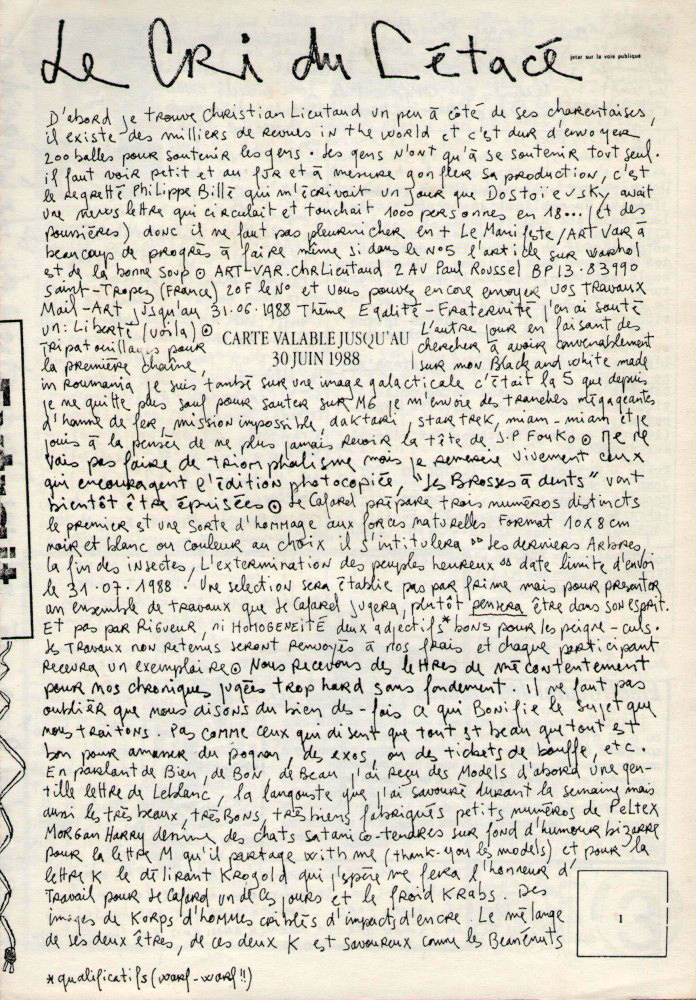 Le CRi du Cétacé
jeter sur la voie publique
D'abord je trouve Christian Lieutaud un peu à côté de ses charentaises,
il existe des milliers de revues in the world et c'est dur d'envoyer
200 balles pour soutenir les gens. Les gens n'ont qu'à se soutenir tout seul.
il faut voir petit et au fur et à mesure gonfler sa production, c'est
le regretté Philippe Billé qui m'écrivait un jour que Dostoïevsky avait
une news lettre qui circulait et touchait 1000 personnes en 18... (et des
poussières) donc il ne faut pas pleurnicher en + Le Manifeste/ART VAR à
beaucoup de progrès à faire même si dans le N°5 l'article sur warhol
est de la bonne soup ⊙ ART-VAR. chr Lieutaud 2 AV Paul Roussel BP13. 83990
Saint-Tropez (France) 20F le N° et vous pouvez encore envoyer vos travaux
Mail-Art jusqu'au 31.06.1988 Thème Egalité - Fraternité j'en ai sauté
un: Liberté (voila) ⊙ L'autre jour en faisant des
tripatouillages pour chercher à avoir convenablement
la première chaîne, sur mon Black and white made
CARTE VALABLE JUSQU'AU
30 JUIN 1988
in Roumania je suis tombé sur une image galacticale c'était la 5 que depuis
je ne quitte plus sauf pour sauter sur M6 je m'envoie des tranches mégageantes
d'homme de fer, mission impossible, daktari, star trek, miam-miam et je
jouis à la pensée de ne plus jamais revoir la tête de J.P Fouko ⊙ Je ne
vais pas faire de triomphalisme mais je remercie vivement ceux
qui encouragent l'édition photocopiée, "Les Brosses à dents" vont
bientôt être épuisées ⊙ Le Cafard prépare trois numéros distincts
le premier est une sorte d'hommage aux forces naturelles Format 10x8cm
noir et blanc ou couleur au choix il s'intitulera "Les derniers Arbres,
la fin des insectes, L'extermination des peuples heureux" date limite d'envoi
le 31.07.1988. Une selection sera établie pas par frime mais pour présenter
un ensemble de travaux que Le Cafard jugera, plutôt pensera être dans son esprit.
Et pas par RIGUEUR, ni HOMOGENEITÉ deux adjectifs* bons pour les peigne-culs.
Les travaux non retenus seront renvoyés à nos frais et chaque participant
recevra un exemplaire ⊙ Nous recevons des lettres de mécontentement
pour nos chroniques jugées trop hard sans fondement. Il ne faut pas
oublier que nous disons du bien des-fois ce qui Bonifie le sujet que
nous traitons. Pas comme ceux qui disent que tout est beau que tout est
bon pour amasser du pognon, des exos, ou des tickets de bouffe, etc.
En parlant de Bien, de Bon, de Beau j'ai reçu des Models d'abord une gen-
tille lettre de Leblanc, la langouste que j'ai savouré durant la semaine mais
aussi les très beaux, très Bons, très biens fabriqués petits numéros de PeLtex
MORGAN HARRY dessine des chats satanico-tendres sur fond d'humour bizarre
pour la lettre M qu'il partage with me (thank-you les models) et pour la
lettre K le délirant Krogold qui j'espère me fera l'honneur d'
travail pour Le Cafard un de ces jours et le froid KRabs. Des
images de Korps d'hommes criblés d'impacts d'encre. Le mélange
de ses deux êtres, de ces deux K est savoureux comme les Beanénuts
1
*qualificatifs (warf-warf!!)